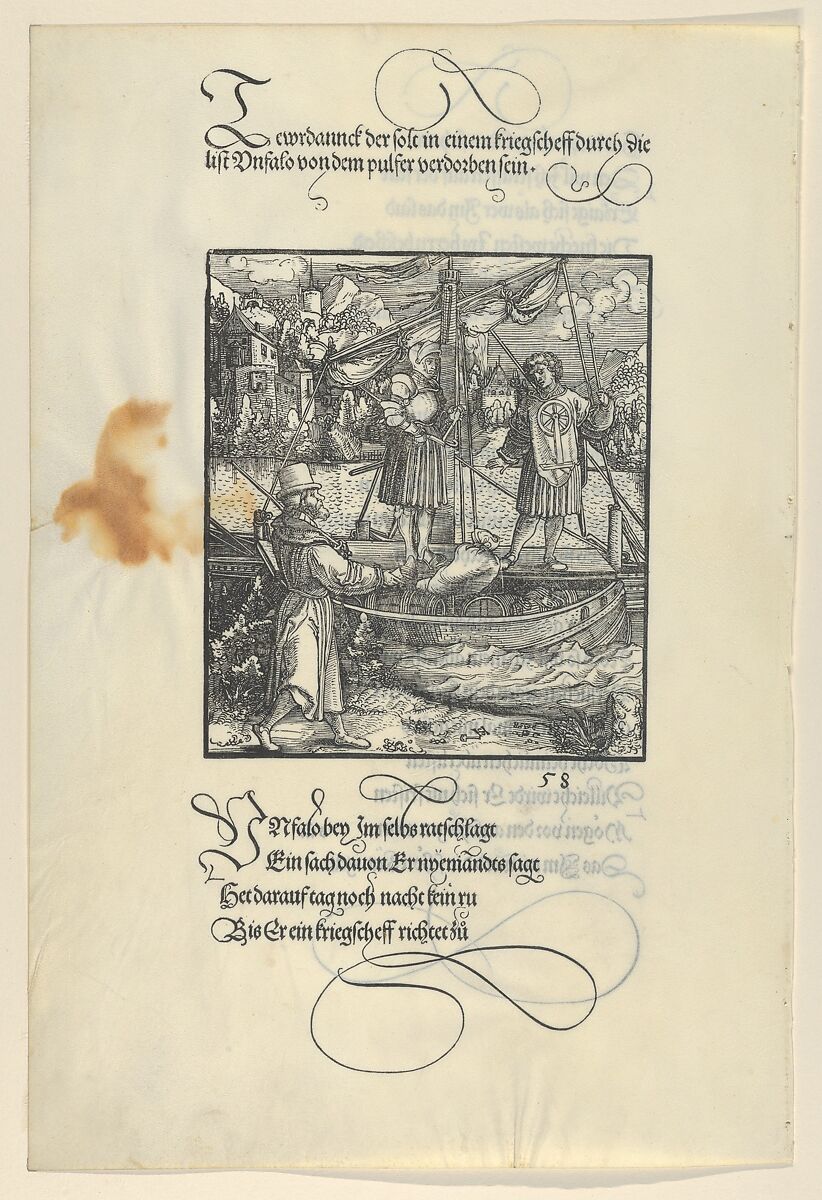 Tewrdannck der solt in einem kriegscheff durch die
list Vnfalo von dem pulfer verdorben sein.
58
VNfalo bey Jm selbs ratschlagt
Ein sach dauon Er nyemandts sagt
Het darauf tag noch nacht kein ru
Bis Er ein kriegscheff richtet zů